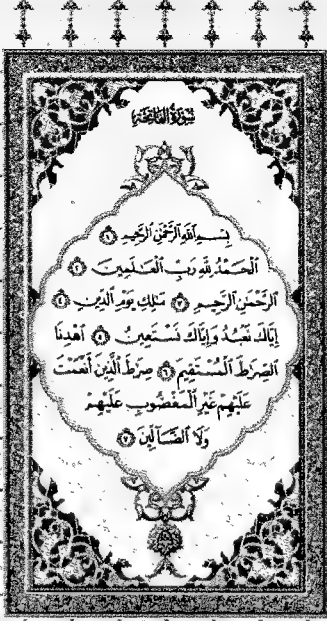 سُورَةُ الفَاتِحَةِ
بِسْمِ اللَّهِ الرَّحْمَٰنِ الرَّحِيمِ ١
الْحَمْدُ لِلَّهِ رَبِّ الْعَٰلَمِينَ ٢
الرَّحْمَٰنِ الرَّحِيمِ ٣ مَٰلِكِ يَوْمِ الدِّينِ ٤
إِيَّاكَ نَعْبُدُ وَإِيَّاكَ نَسْتَعِينُ ٥ اهْدِنَا
الصِّرَٰطَ الْمُسْتَقِيمَ ٦ صِرَٰطَ الَّذِينَ أَنْعَمْتَ
عَلَيْهِمْ غَيْرِ الْمَغْضُوبِ عَلَيْهِمْ
وَلَا الضَّآلِّينَ ٧